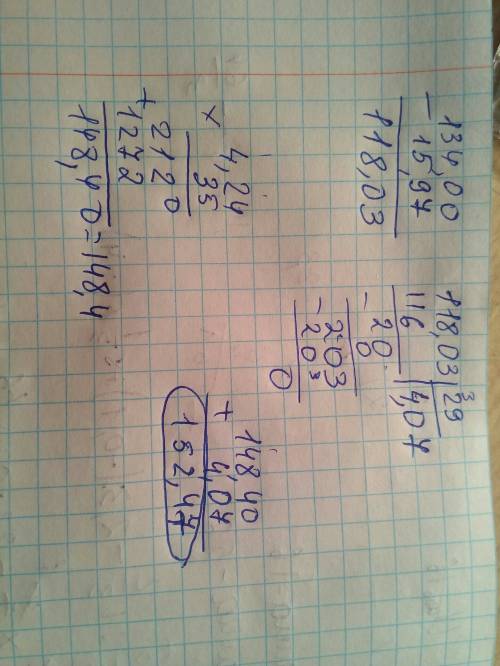 134,00
− 15,97
118,03
118,03 | 29
116 | 4,07
− 20
0
− 203
203
0
× 4,24
35
2120
+ 1272
148,40 = 148,4
+ 148,40
4,07
152,47